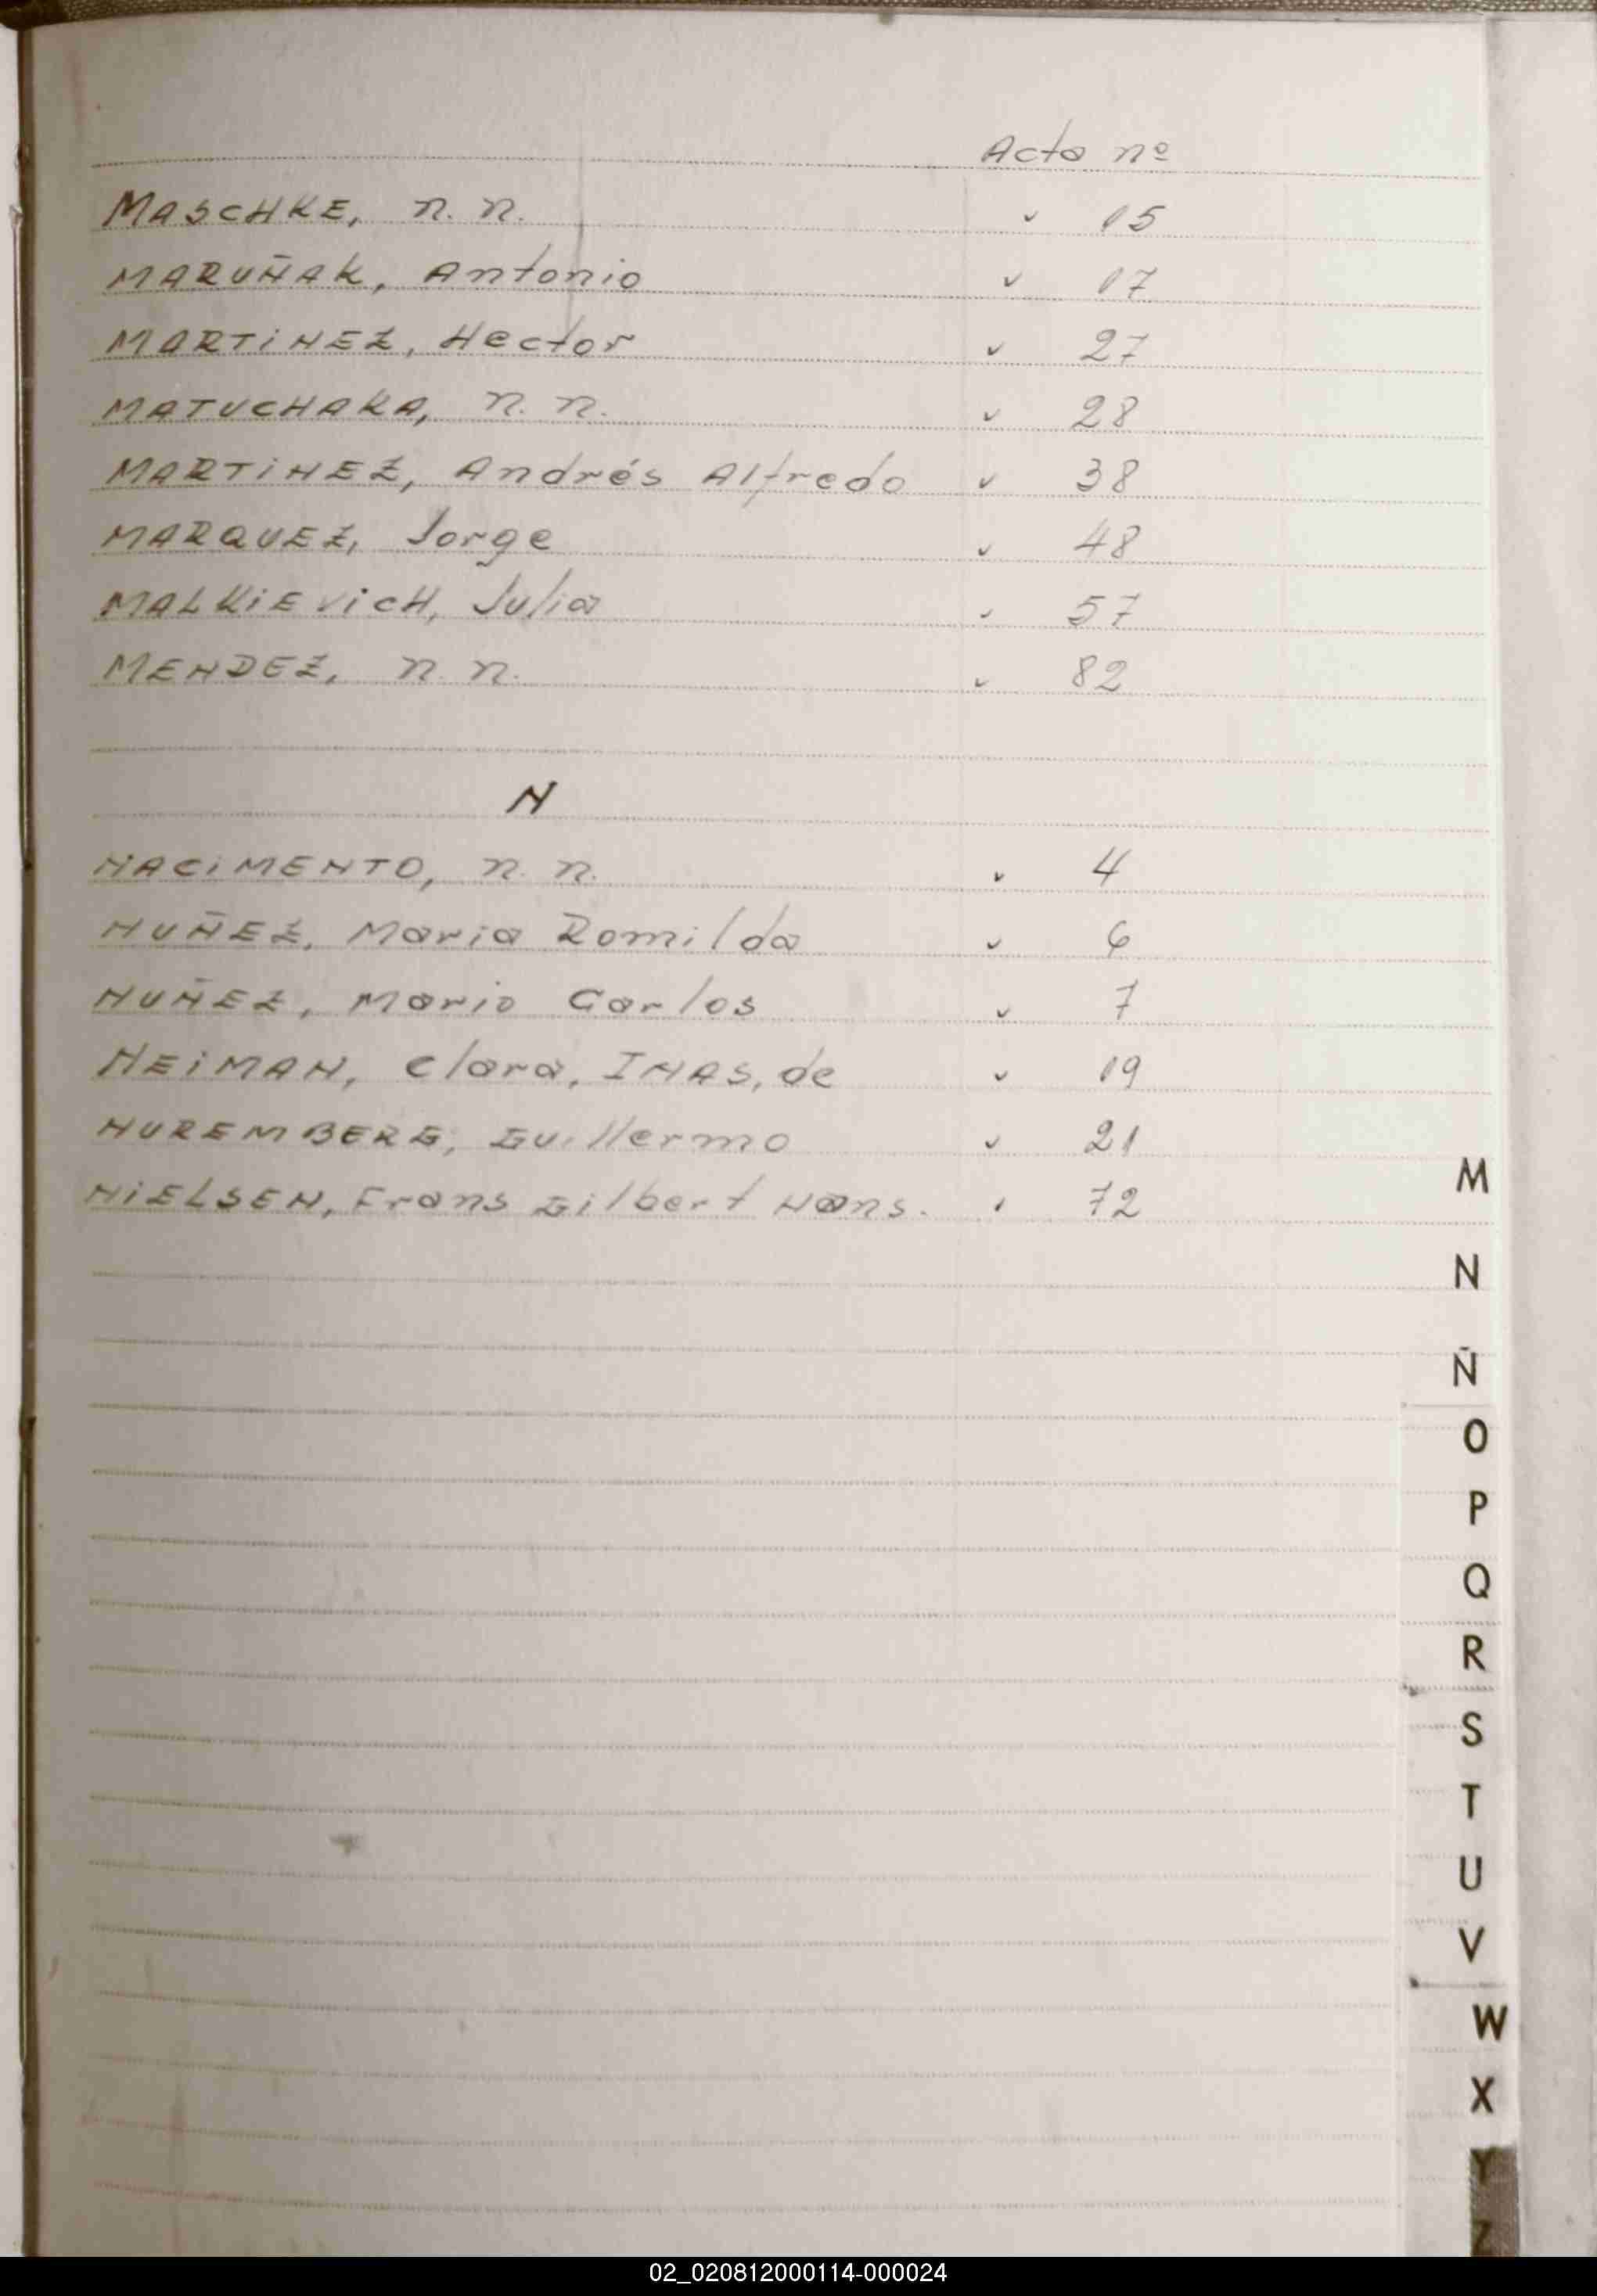 Acta nº
MASCHKE, n. n. ✓ 15
MARUÑAK, Antonio ✓ 17
MARTiNEZ, Hector ✓ 27
MATUCHAKA, n. n. ✓ 28
MARTiNEZ, Andrés Alfredo ✓ 38
MARQUEZ, Jorge ✓ 48
MALKiEViCH, Julia ✓ 57
MENDEZ, n. n. ✓ 82
N
NACiMENTO, n. n. ✓ 4
NUÑEZ, Maria Romilda ✓ 6
NUÑEZ, Mario Carlos ✓ 7
NEiMAN, Clara, INAS, de ✓ 19
NUREMBERG, Guillermo ✓ 21
NiELSEN, Frans Gilbert Hans. ✓ 72
M
N
Ñ
O
P
Q
R
S
T
U
V
W
X
Y
Z
02_020812000114-000024